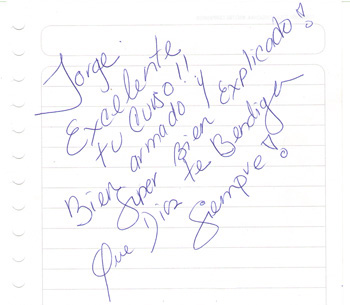 Jorge
Excelente
tu curso!!
Bien armado y
Super Bien Explicado!
Que Dios te Bendiga
Siempre!